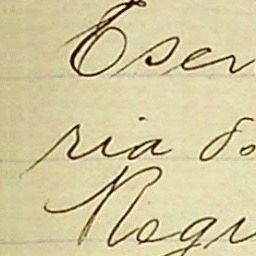 Escr
ria do
Regi